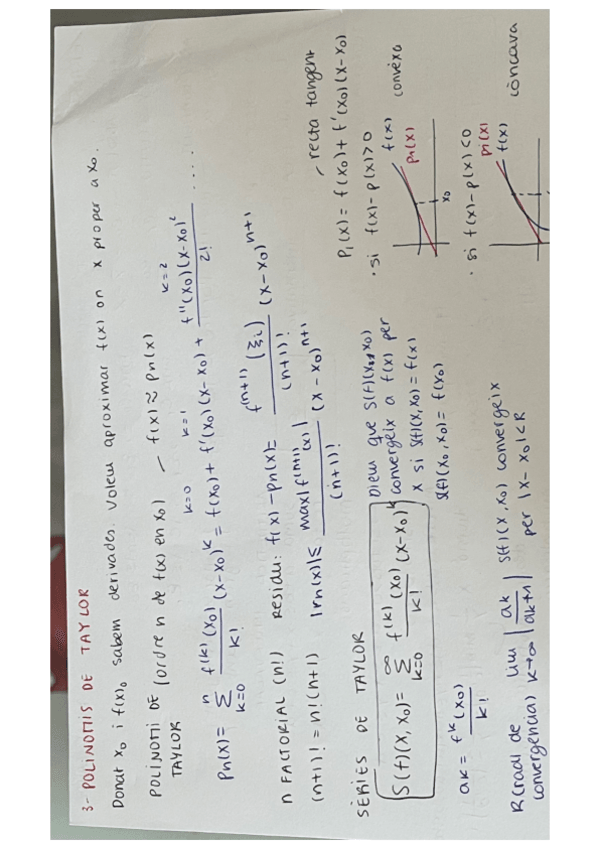 3- POLINOMIS DE TAYLOR
Donat x₀ i f(x)₀ sabem derivades. Volem aproximar f(x) on x proper a x₀.
POLINOMI DE TAYLOR (ordre n de f(x) en x₀) — f(x) ≈ Pn(x)
k=0 k=1 k=2
Pn(x) = Σ_{k=0}^{n} f^(k)(x₀)/k! (x-x₀)^k = f(x₀) + f'(x₀)(x-x₀) + f''(x₀)(x-x₀)²/2! ....
n FACTORIAL (n!) Residu: f(x) - pn(x) = f^(n+1)(ξi)/(n+1)! (x-x₀)^(n+1)
(n+1)! = n!(n+1) |rn(x)| ≤ max|f^(n+1)(x)|/(n+1)! (x-x₀)^(n+1)
SÈRIES DE TAYLOR
S(f)(x,x₀) = Σ_{k=0}^{∞} f^(k)(x₀)/k! (x-x₀)^k
Diem que S(f)(x,x₀)
convergeix a f(x) per
x si S(f)(x,x₀) = f(x)
S(f)(x₀,x₀) = f(x₀)
ak = f^k(x₀)/k!
R(radi de convergència) lim_{k→∞} |ak/ak+1| S(f)(x,x₀) convergeix
per |x-x₀|<R
recta tangent
P₁(x) = f(x₀) + f'(x₀)(x-x₀)
· si f(x) - p(x) > 0
f(x)
p₁(x)
convèxa
x₀
· si f(x) - p(x) < 0
p₁(x)
f(x)
còncava